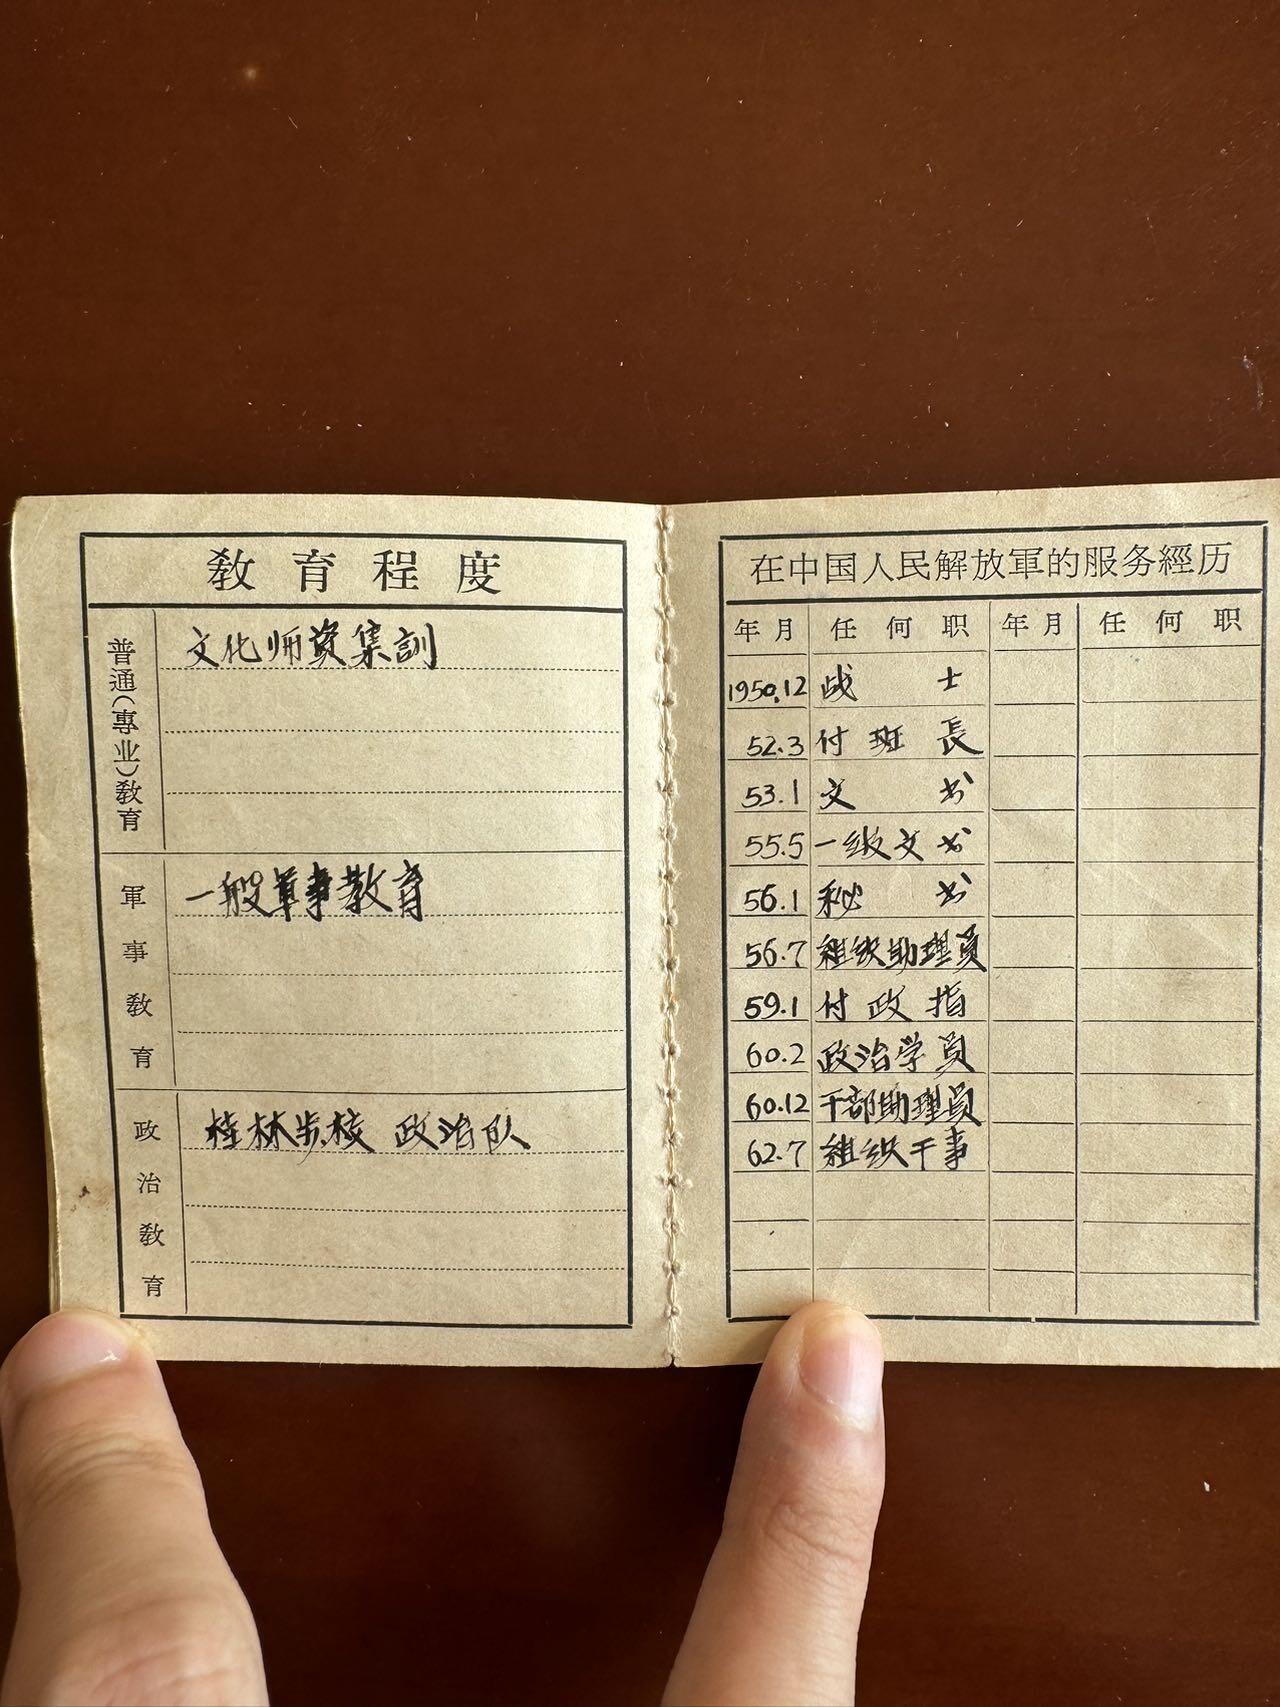 教育程度
普通(專业)教育
文化师资集訓
軍事教育
一般軍事教育
政治教育
桂林步校 政治队
在中国人民解放軍的服务經历
年月 任何职 年月 任何职
1950.12 战士
52.3 付班長
53.1 文书
55.5 一级文书
56.1 秘书
56.7 组织助理員
59.1 付政指
60.2 政治学員
60.12 干部助理員
62.7 组织干事